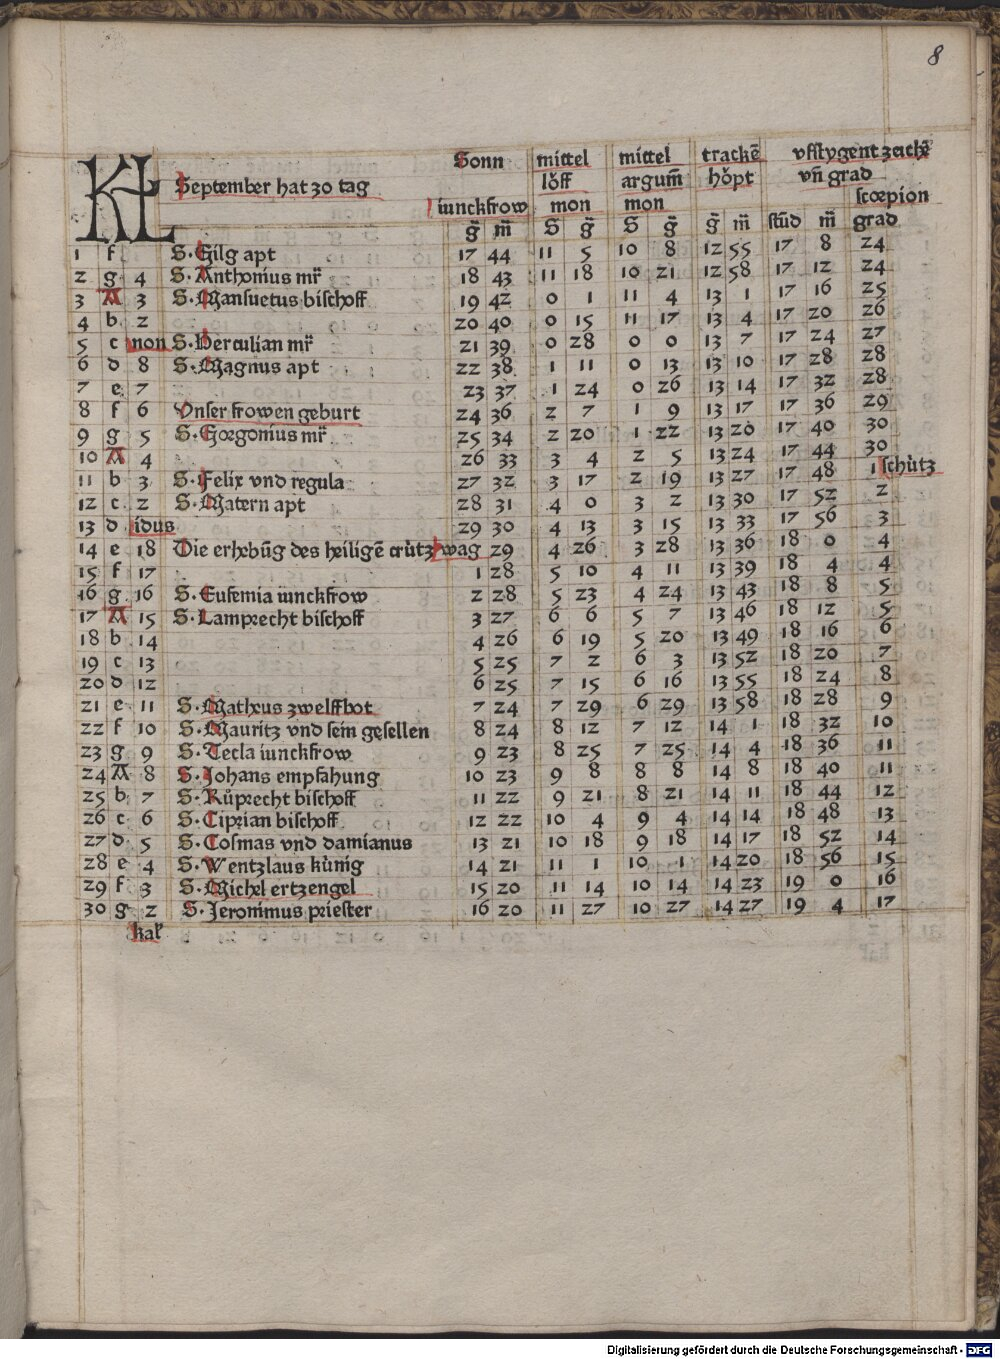 8
KL September hat 30 tag
Sonn mittel mittel trackē vfstygent zeichē
löff argum̄ höpt vn̄ grad
iunckfrow mon mon scorpion
g̈ m̄ S g̈ S g̈ g̈ m̄ stūd m̄ grad
1 f S. Gilg apt 17 44 11 5 10 8 12 55 17 8 24
2 g 4 S. Anthonius mr̄ 18 43 11 18 10 21 12 58 17 12 24
3 A 3 S. Mansuetus bischoff 19 42 0 1 11 4 13 1 17 16 25
4 b 2 20 40 0 15 11 17 13 4 17 20 26
5 c non S. Herculian mr̄ 21 39 0 28 0 0 13 7 17 24 27
6 d 8 S. Magnus apt 22 38 1 11 0 13 13 10 17 28 28
7 e 7 23 37 1 24 0 26 13 14 17 32 28
8 f 6 Vnser frowen geburt 24 36 2 7 1 9 13 17 17 36 29
9 g 5 S. Gorgonius mr̄ 25 34 2 20 1 22 13 20 17 40 30
10 A 4 26 33 3 4 2 5 13 24 17 44 30
11 b 3 S. Felix vnd regula 27 32 3 17 2 19 13 27 17 48 1 schütz
12 c 2 S. Matern apt 28 31 4 0 3 2 13 30 17 52 2
13 d idus 29 30 4 13 3 15 13 33 17 56 3
14 e 18 Die erhebūg des heiligē crütz wag 29 4 26 3 28 13 36 18 0 4
15 f 17 1 28 5 10 4 11 13 39 18 4 4
16 g 16 S. Eufemia iunckfrow 2 28 5 23 4 24 13 43 18 8 5
17 A 15 S. Lamprecht bischoff 3 27 6 6 5 7 13 46 18 12 5
18 b 14 4 26 6 19 5 20 13 49 18 16 6
19 c 13 5 25 7 2 6 3 13 52 18 20 7
20 d 12 6 25 7 15 6 16 13 55 18 24 8
21 e 11 S. Matheus zwelffbot 7 24 7 29 6 29 13 58 18 28 9
22 f 10 S. Mauritz vnd sein gesellen 8 24 8 12 7 12 14 1 18 32 10
23 g 9 S. Tecla iunckfrow 9 23 8 25 7 25 14 4 18 36 11
24 A 8 S. Johans empfahung 10 23 9 8 8 8 14 8 18 40 11
25 b 7 S. Rüprecht bischoff 11 22 9 21 8 21 14 11 18 44 12
26 c 6 S. Ciprian bischoff 12 22 10 4 9 4 14 14 18 48 13
27 d 5 S. Cosmas vnd damianus 13 21 10 18 9 18 14 17 18 52 14
28 e 4 S. Wentzlaus künig 14 21 11 1 10 1 14 20 18 56 15
29 f 3 S. Michel ertzengel 15 20 11 14 10 14 14 23 19 0 16
30 g 2 S. Jeronimus priester 16 20 11 27 10 27 14 27 19 4 17
kal
Digitalisierung gefördert durch die Deutsche Forschungsgemeinschaft - DFG